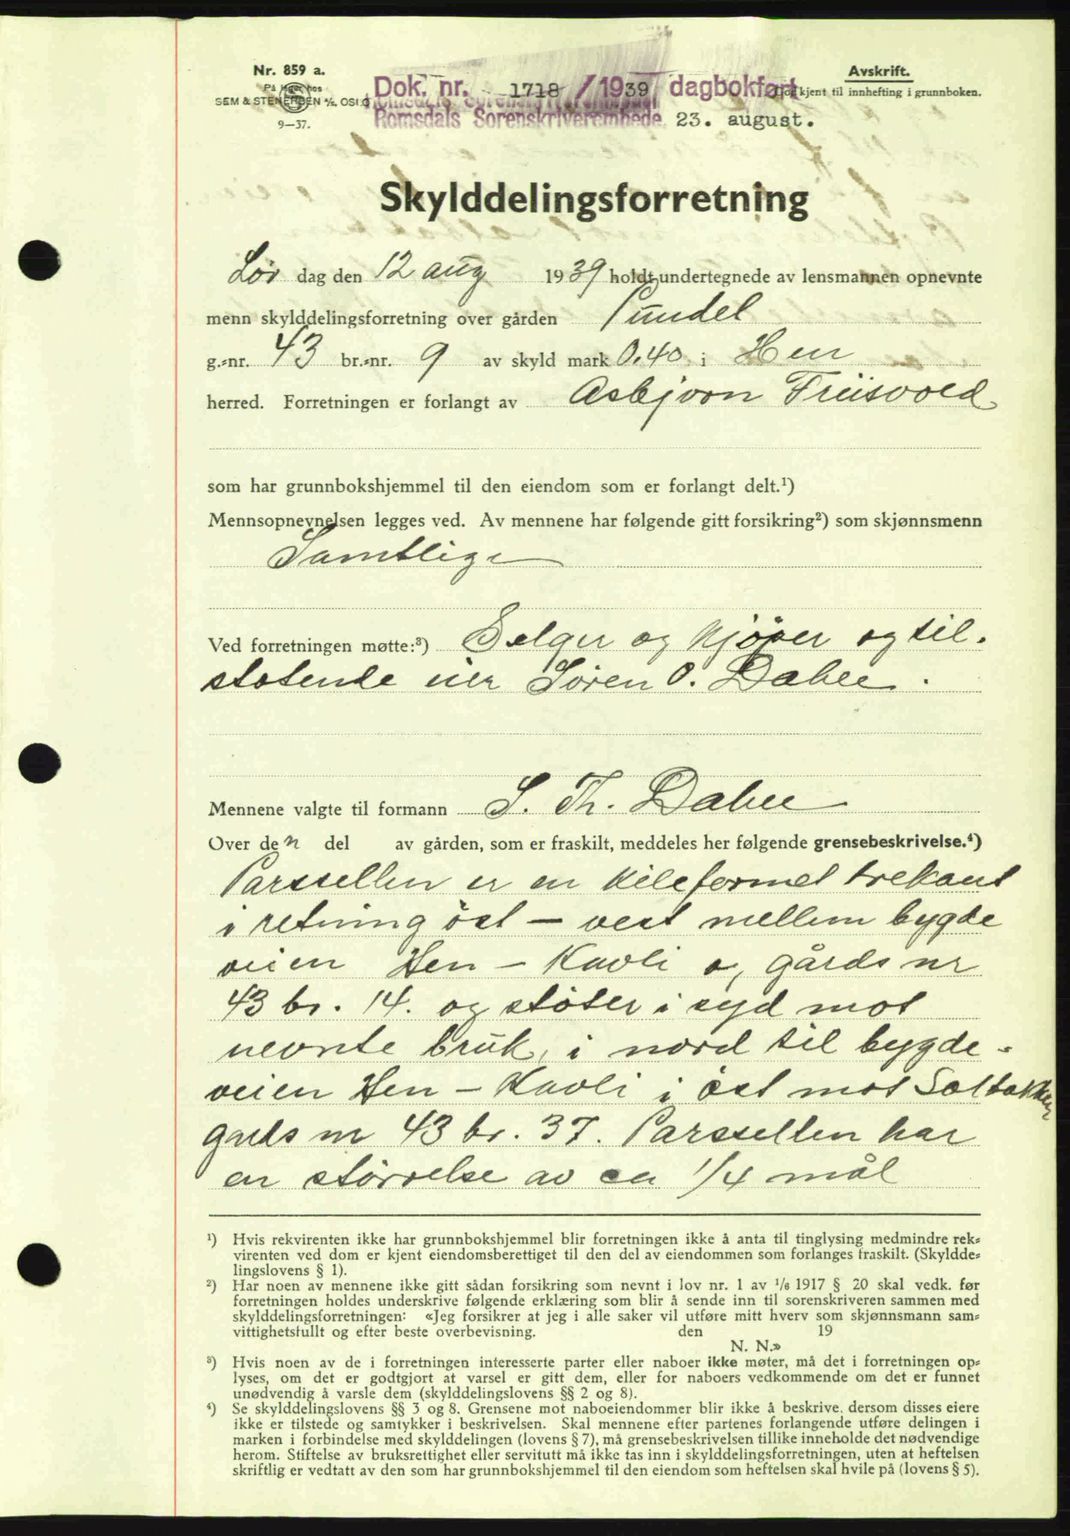 Nr. 859 a.
På lager hos
SEM & STENERSEN A/S, OSLO
9—37.
Dok. nr. 1718 / 1939 dagbokført
Romsdals Sorenskriverembede. 23. august.
Avskrift.
Godkjent til innhefting i grunnboken.
Skylddelingsforretning
Lør dag den 12 aug 1939 holdt undertegnede av lensmannen opnevnte
menn skylddelingsforretning over gården Pundel
g.-nr. 43 br.-nr. 9 av skyld mark 0.40 i Hen
herred. Forretningen er forlangt av Asbjørn Friisvold
som har grunnbokshjemmel til den eiendom som er forlangt delt.¹)
Mennsopnevnelsen legges ved. Av mennene har følgende gitt forsikring²) som skjønnsmenn
Samtlige
Ved forretningen møtte:³) Selger og kjöper og til-
støtende eier Søren O. Dahle.
Mennene valgte til formann S. Th. Dahle
Over den del av gården, som er fraskilt, meddeles her følgende grensebeskrivelse.⁴)
Parssellen er en kileformet trekant
i retning öst – vest mellem bygde
veien Hen – Kavli o, gårds nr
43 br. 14. og stöter i syd mot
nevnte bruk, i nord til bygde-
veien Hen – Kavli i öst mot Solbakken
gards nr 43 br. 37. Parssellen har
en størrelse av ca 1/4 mål
¹) Hvis rekvirenten ikke har grunnbokshjemmel blir forretningen ikke å anta til tinglysing medmindre rek-
virenten ved dom er kjent eiendomsberettiget til den del av eiendommen som forlanges fraskilt. (Skyldde-
lingslovens § 1).
²) Har noen av mennene ikke gitt sådan forsikring som nevnt i lov nr. 1 av 1/6 1917 § 20 skal vedk. før
forretningen holdes underskrive følgende erklæring som blir å sende inn til sorenskriveren sammen med
skylddelingsforretningen: «Jeg forsikrer at jeg i alle saker vil utføre mitt hverv som skjønnsmann sam-
vittighetsfullt og efter beste overbevisning. den 19
N. N.»
³) Hvis noen av de i forretningen interesserte parter eller naboer ikke møter, må det i forretningen op-
lyses, om det er godtgjort at varsel er gitt dem, eller for naboers vedkommende om det er funnet
unødvendig å varsle dem (skylddelingslovens §§ 2 og 8).
⁴) Se skylddelingslovens §§ 3 og 8. Grensene mot naboeiendommer blir ikke å beskrive, dersom disses eiere
ikke er tilstede og samtykker i beskrivelsen. Skal mennene efter partenes forlangende utføre delingen i
marken i forbindelse med skylddelingen (lovens § 7), må grensebeskrivelsen tillike inneholde det nødvendige
herom. Stiftelse av bruksrettighet eller servitutt må ikke tas inn i skylddelingsforretningen, uten at heftelsen
skriftlig er vedtatt av den som har grunnbokshjemmel til den eiendom som heftelsen skal hvile på (lovens § 5).